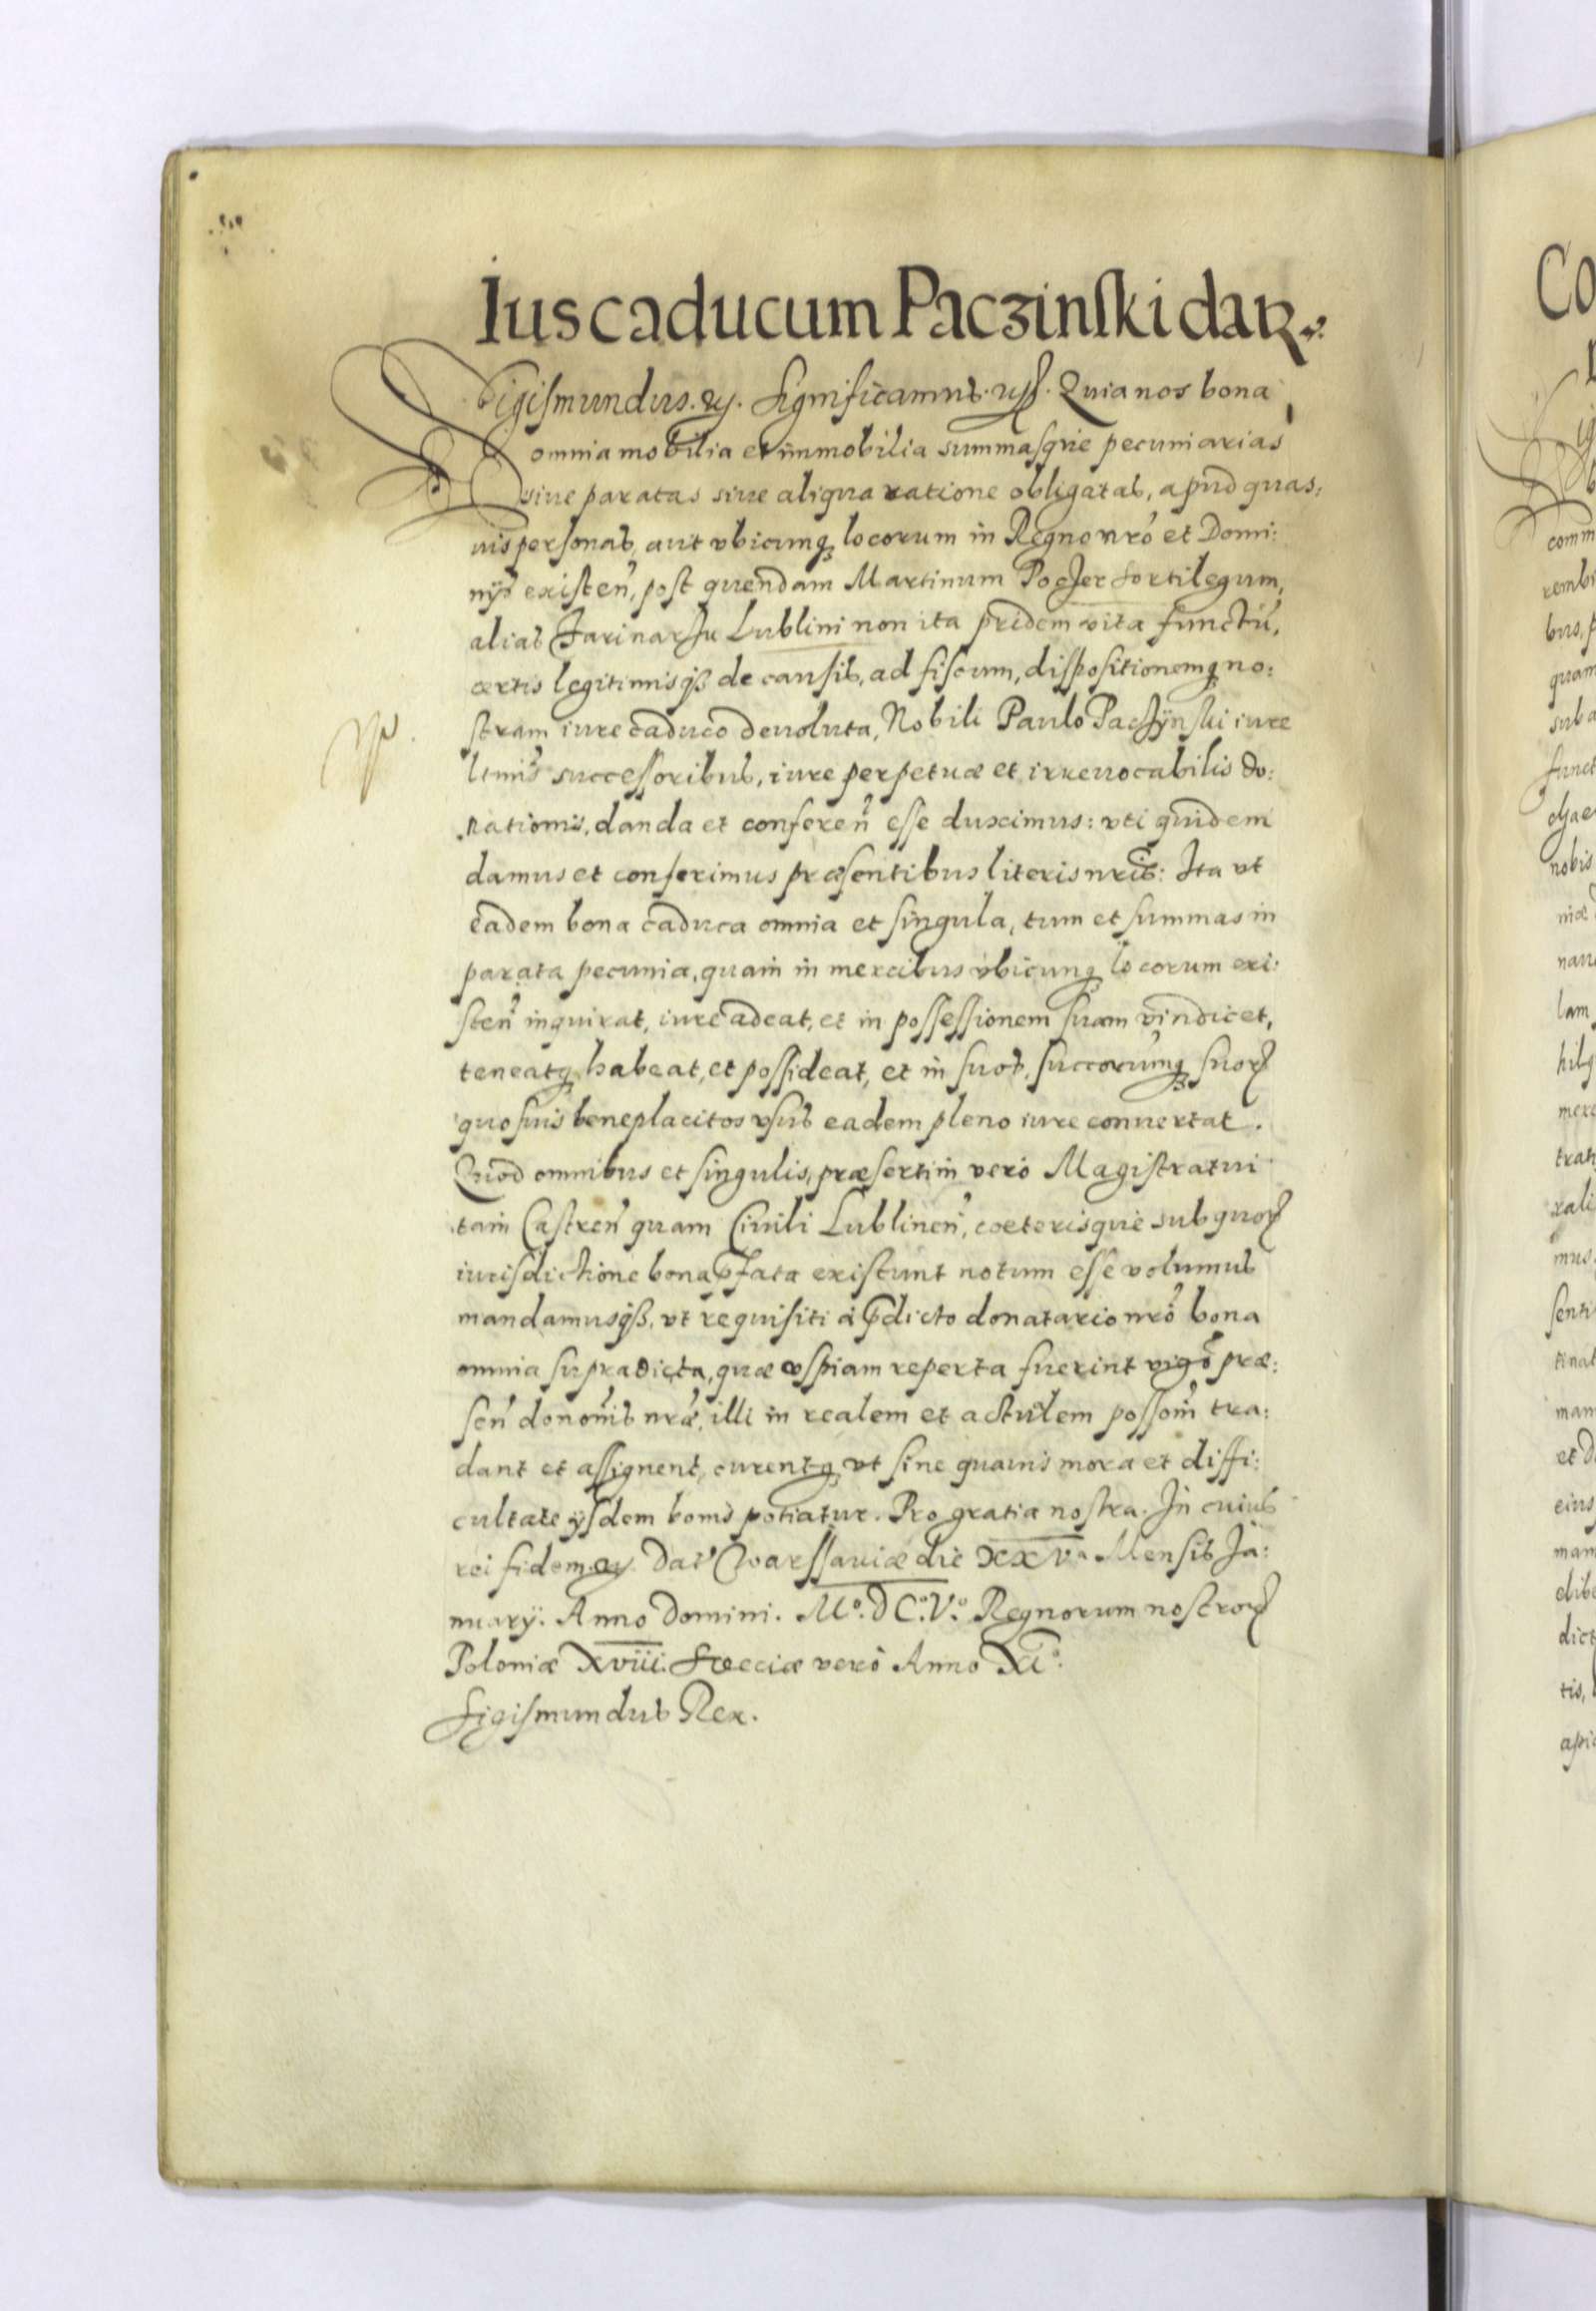 Ius caducum Paczinski datꝛ.
Sigismundus. ec. Significamus. uss. Quia nos bona
omnia mobilia et immobilia summasque pecuniarias
siue paratas siue aliqua ratione obligatas, apud quas:
uis personas, aut vbicunq locorum in Regno nrō et Domi:
nÿs existeñ, post quendam Martinum Poczer sortilegum,
alias Lublini non ita pridem vita functū,
certis legitimisqß de causis, ad fiscum, dispositionemq no:
stram iure caduco deuoluta, Nobili Paulo Paczÿnski iure
ltimis successoribus, iure perpetuæ et irreuocabilis do:
nationis, danda et confereñ esse duximus: vti quidem
damus et conferimus præsentibus literis nrīs: Ita vt
eadem bona caduca omnia et singula, tum et summas in
parata pecunia, quam in mercibus vbicunq locorum exi:
steñ inquirat, iure adeat, et in possessionem suam vindicet,
teneatq habeat, et possideat, et in suos, succorumq suoꝝ
quosuis beneplacitos vsus eadem pleno iure conuertat.
Quod omnibus et singulis, præsertim vero Magistratui
tam Castreñ quam Ciuili Lublineñ, cœterisque sub quoꝝ
iurisdictione bona pfata existunt notum esse volumus
mandamusqß, vt requisiti à pdicto donatario nrō bona
omnia supradicta, quæ vspiam reperta fuerint vigō præ:
señ donoñis nræ, illi in realem et actulem possom̄ tra:
dant et assignent, curentq vt sine quauis mora et diffi:
cultate ÿsdem bonis potiatur. Pro gratia nostra. In cuius
rei fidem. ec. Dat' Warssauiæ die XXV.a Mensis Ja:
nuarÿ. Anno Domini. Mº. DCº. Vº. Regnorum nostroꝝ
Poloniæ XVIII. Sueciæ verò Anno XIº.
Sigismundus Rex.